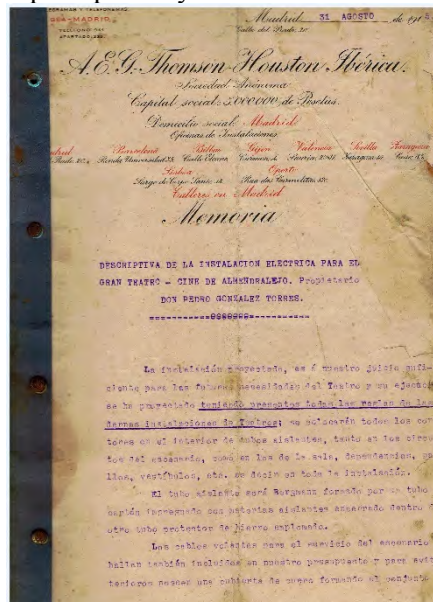 GRAMAS Y TELEFONEMAS
MADRID
TELÉFONO
APARTADO
Madrid 31 AGOSTO de 191
Calle del Prado, 20
A.E.G. Thomson Houston Ibérica.
Sociedad Anónima
Capital social: 5.000.000, de Pesetas.
Domicilio social: Madrid
Oficinas de Instalaciones:
Barcelona Bilbao Gijón Valencia Sevilla
Prado, 20 Ronda Universidad
Lisboa Oporto
Rua das Carmelitas
Talleres en Madrid
Memoria
DESCRIPTIVA DE LA INSTALACION ELECTRICA PARA EL
GRAN TEATRO - CINE DE ALMENDRALEJO. Propietario
DON PEDRO GONZALEZ TORRES.
La instalación proyectada, es á nuestro juicio sufi-
ciente para las futuras necesidades del Teatro y su
se ha proyectado teniendo presentes todas las reglas de las
dernas instalaciones de Teatros; se colocarán todos los
tores en el interior de tubos aislantes, tanto en los
tos del escenario, como en los de la sala, dependencias,
llos, vestíbulos, etc. es decir en toda la instalación.
El tubo aislante será Bergmann formado por un tubo
cartón impregnado con materias aislantes encerrado dentro
otro tubo protector de hierro emplomado.
Los cables volantes para el servicio del escenario
hallan también incluidos en nuestro presupuesto y para
poseen una cubierta de formando el conjunto